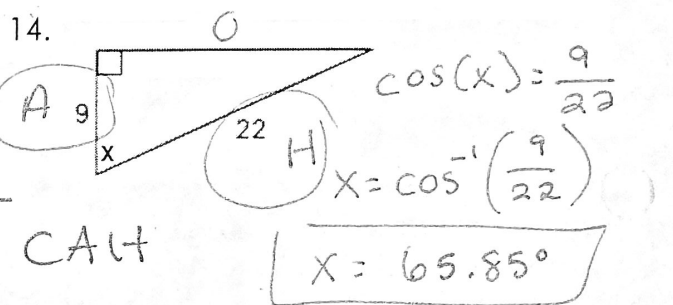 14.
O
A 9
22 H
x
cos(x) = 9/22
x = cos⁻¹(9/22)
CAH
x = 65.85°